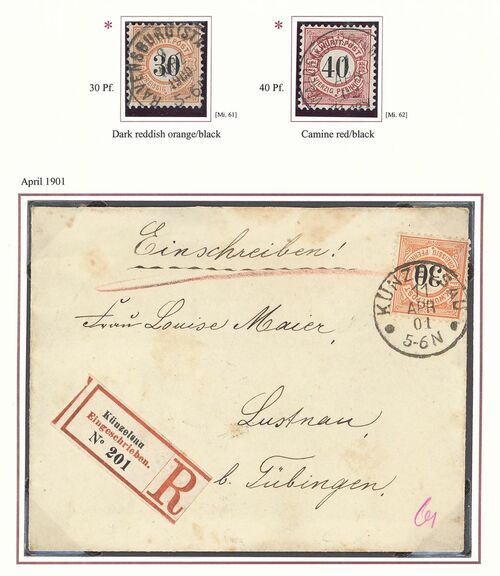 *
*
30
40
30 Pf.
40 Pf.
[Mi. 61]
[Mi. 62]
Dark reddish orange/black
Camine red/black
April 1901
Einschreiben!
30
KÜNZELSAU
APR
01
5-6N
Frau Louise Maier,
Künzelsau
Eingeschrieben.
No 201
R
Lustnau,
b. Tübingen.